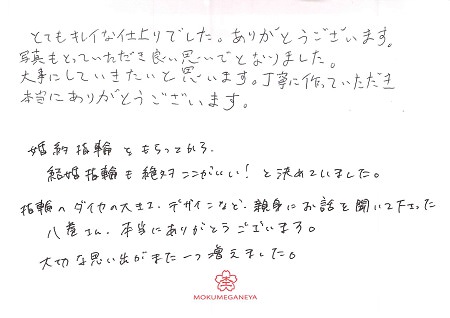 とてもキレイな仕上りでした。ありがとうございます。
写真もとっていただき良い思いでとなりました。
大事にしていきたいと思います。丁寧に作っていただき
本当にありがとうございます。
婚約指輪をもらってから、
結婚指輪も絶対ここがいい！と決めていました。
指輪のダイヤの大きさ、デザインなど、親身にお話を聞いて下さった
八巻さん、本当にありがとうございます。
大切な思い出がまた一つ増えました。
MOKUMEGANEYA